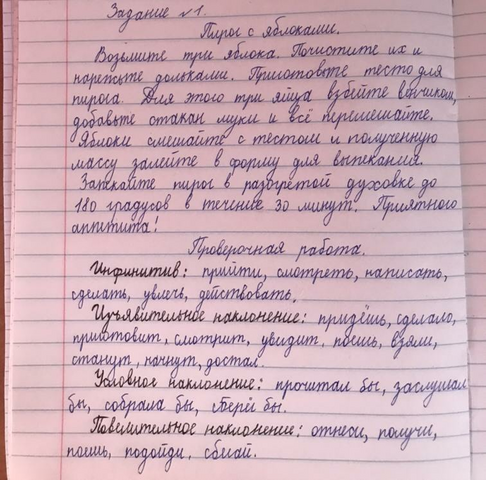 Задание №1.
Пирог с яблоками.
Возьмите три яблока. Почистите их и
нарежьте дольками. Приготовьте тесто для
пирога. Для этого три яйца взбейте венчиком,
добавьте стакан муки и всё перемешайте.
Яблоки смешайте с тестом и полученную
массу залейте в форму для выпекания.
Запекайте пирог в разогретой духовке до
180 градусов в течение 30 минут. Приятного
аппетита!
Проверочная работа.
Инфинитив: прийти, смотреть, написать,
сделать, увлечь, действовать.
Изъявительное наклонение: придёшь, сделало,
приготовит, смотрит, увидит, поёшь, взяли,
станут, начнут, достал.
Условное наклонение: прочитал бы, заслушал
бы, собрала бы, берёг бы.
Повелительное наклонение: отнеси, получи,
поешь, подойди, сбегай.